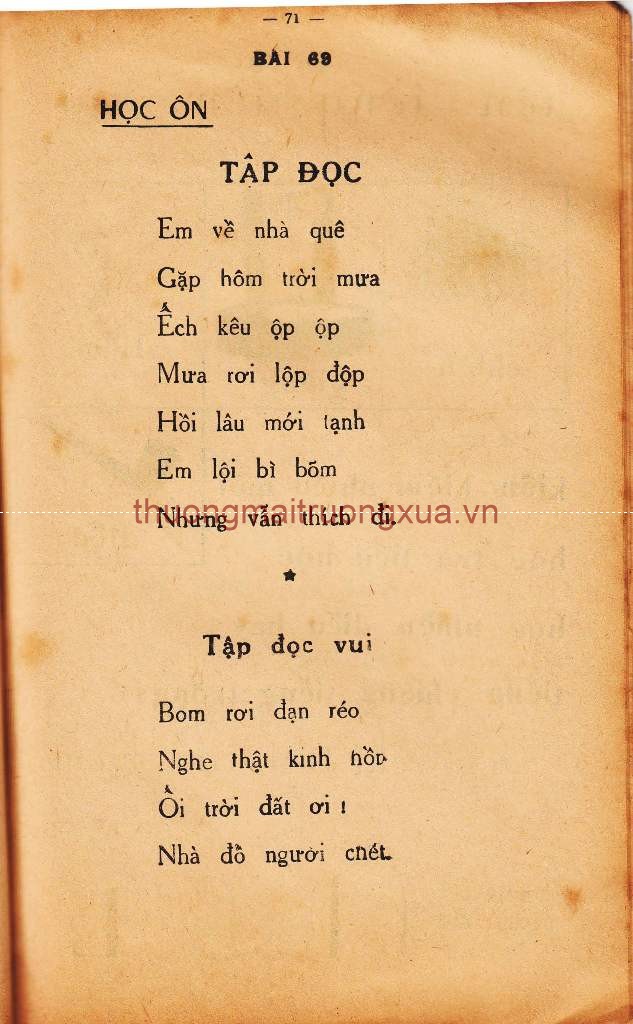 — 71 —
BÀI 69
HỌC ÔN
TẬP ĐỌC
Em về nhà quê
Gặp hôm trời mưa
Ếch kêu ộp ộp
Mưa rơi lộp độp
Hồi lâu mới tạnh
Em lội bì bõm
Nhưng vẫn thích đi.
thuongmaitruongxua.vn
★
Tập đọc vui
Bom rơi đạn réo
Nghe thật kinh hồn
Ối trời đất ơi !
Nhà đổ người chết.